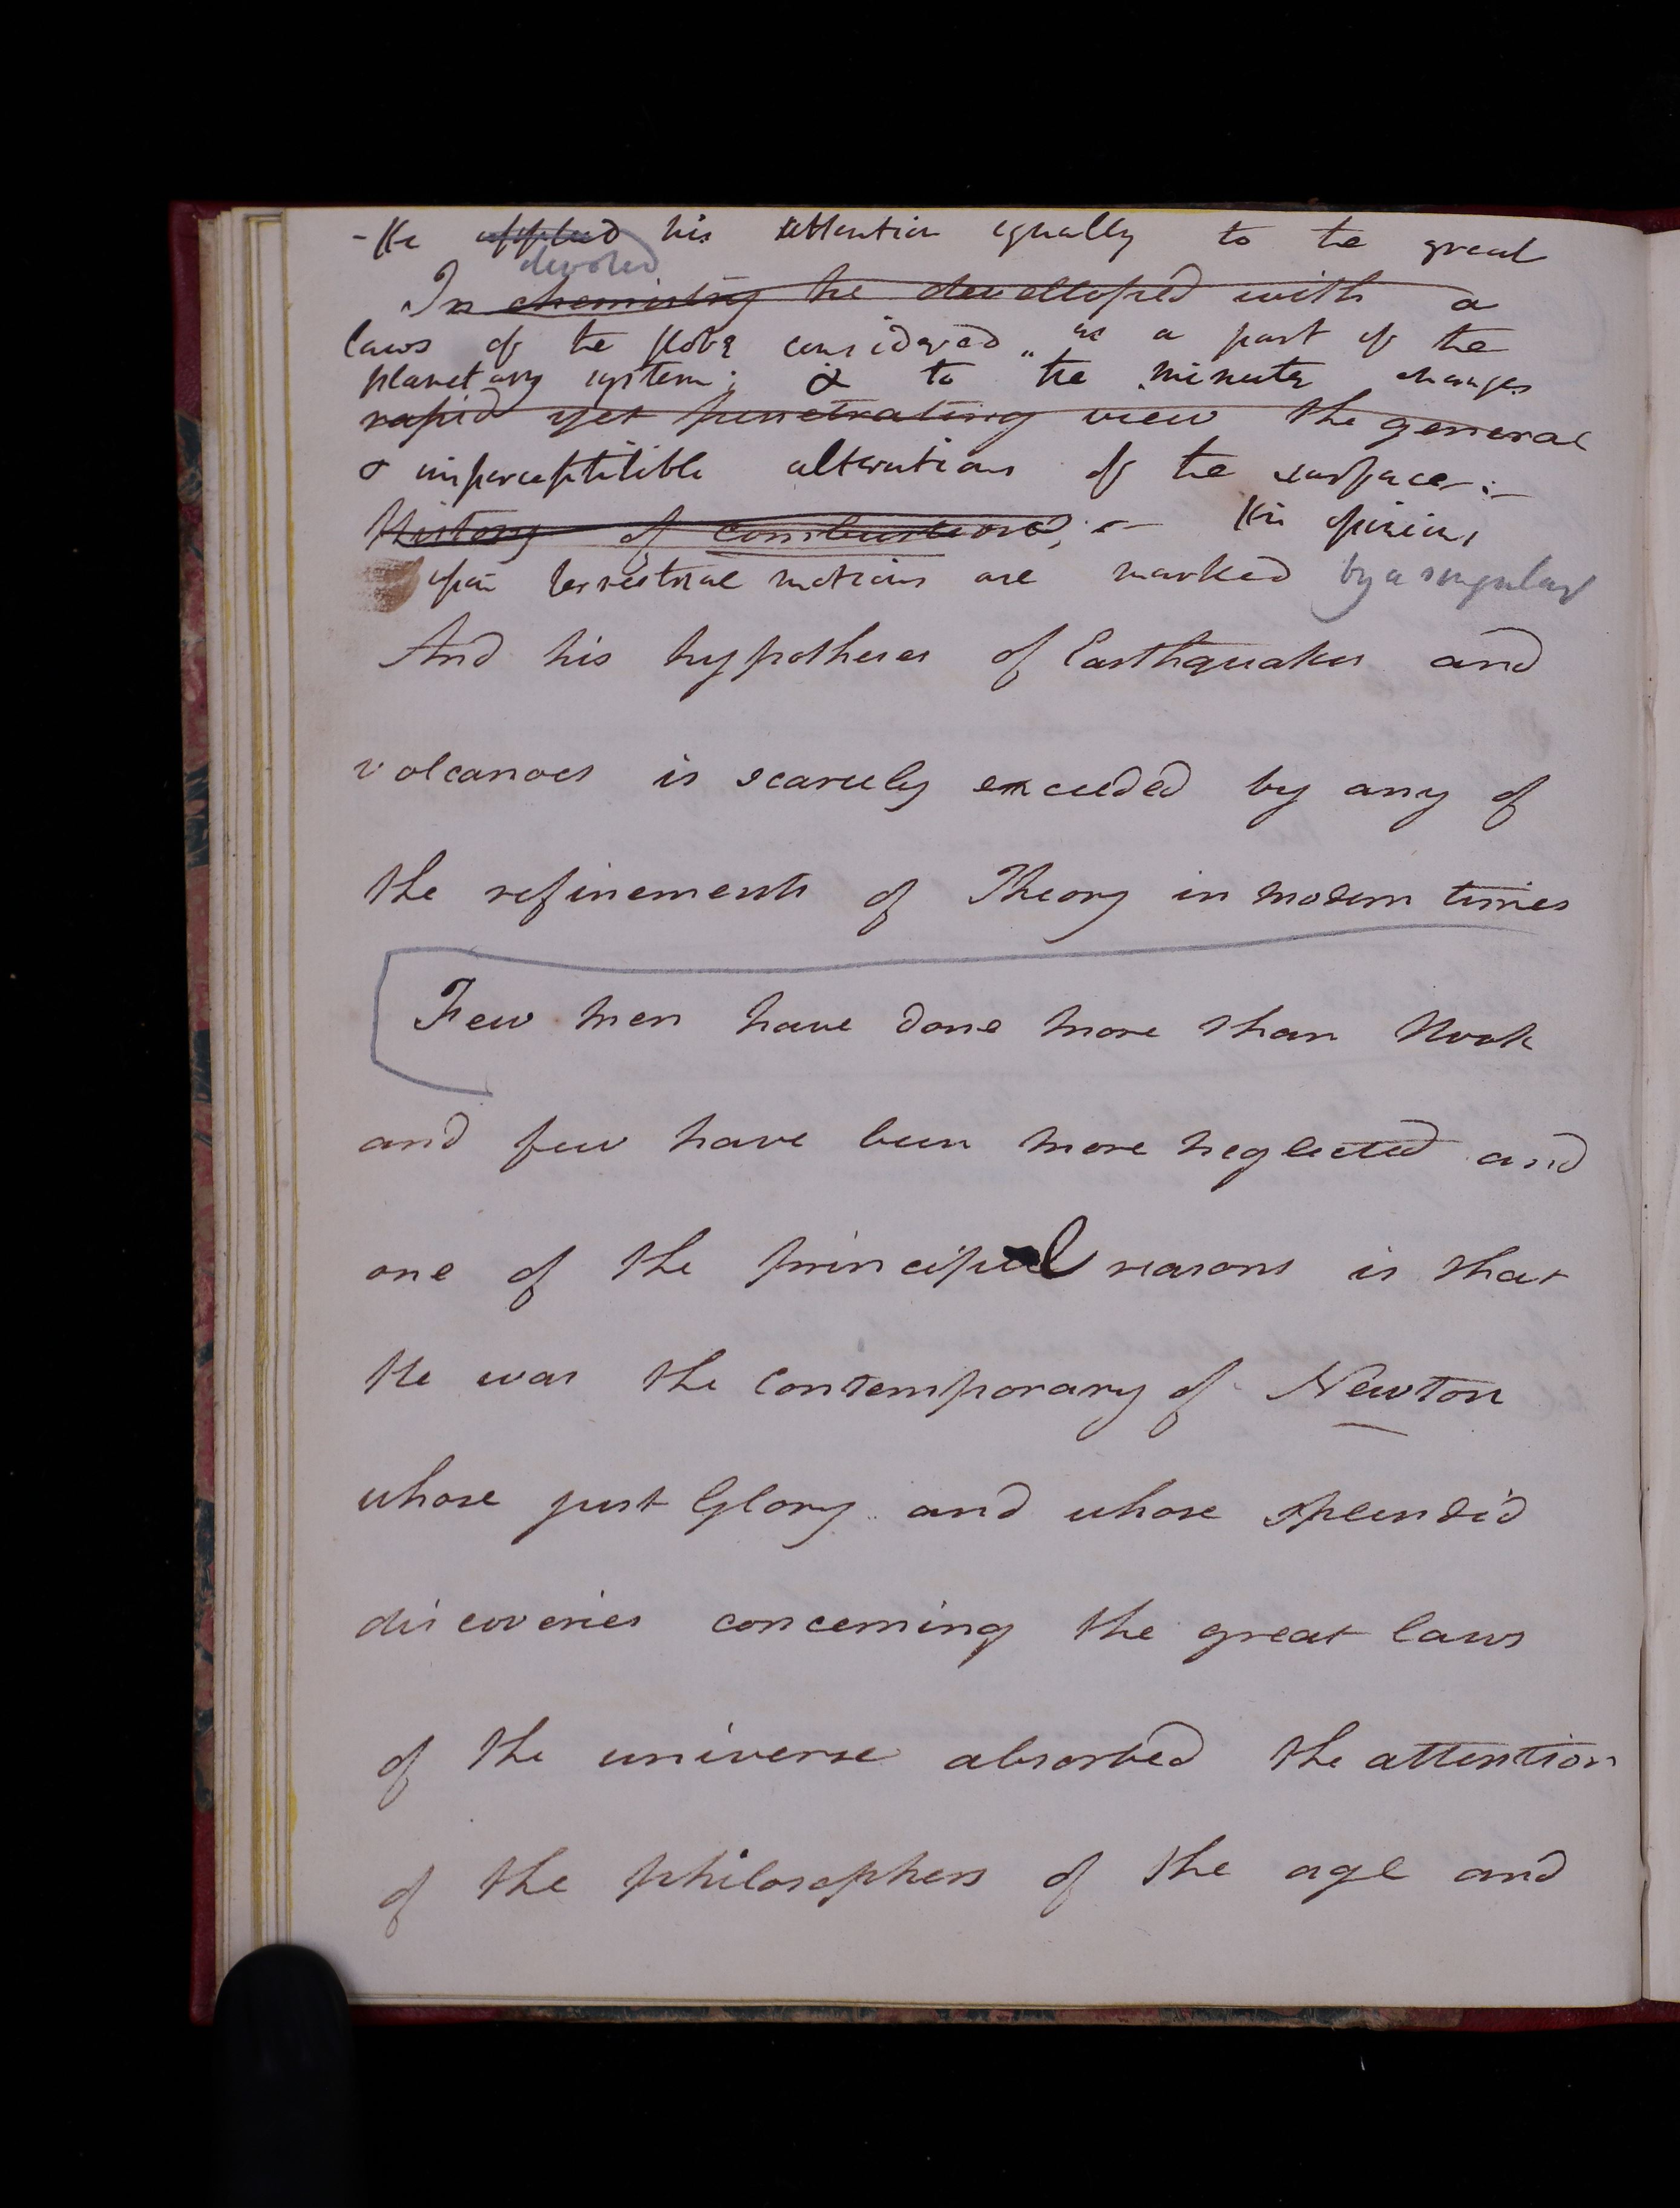 - He applied his attention equally to the great
devoted
In chemistry he developed with a
laws of the globe considered as a part of the
planetary system; & to the minute changes
rapid yet penetrating view the general
& imperceptilible alterations of the surface:-
History of combustion; - His opinions
upon terrestrial motions are marked by a singular
And his hypotheses of Earthquakes and
volcanoes is scarcely exceeded by any of
the refinements of Theory in modern times
Few men have done more than Hook
and few have been more neglected and
one of the principal reasons is that
He was the Contemporary of Newton
whose just Glory and whose splendid
discoveries concerning the great laws
of the universe absorbed the attention
of the philosophers of the age and